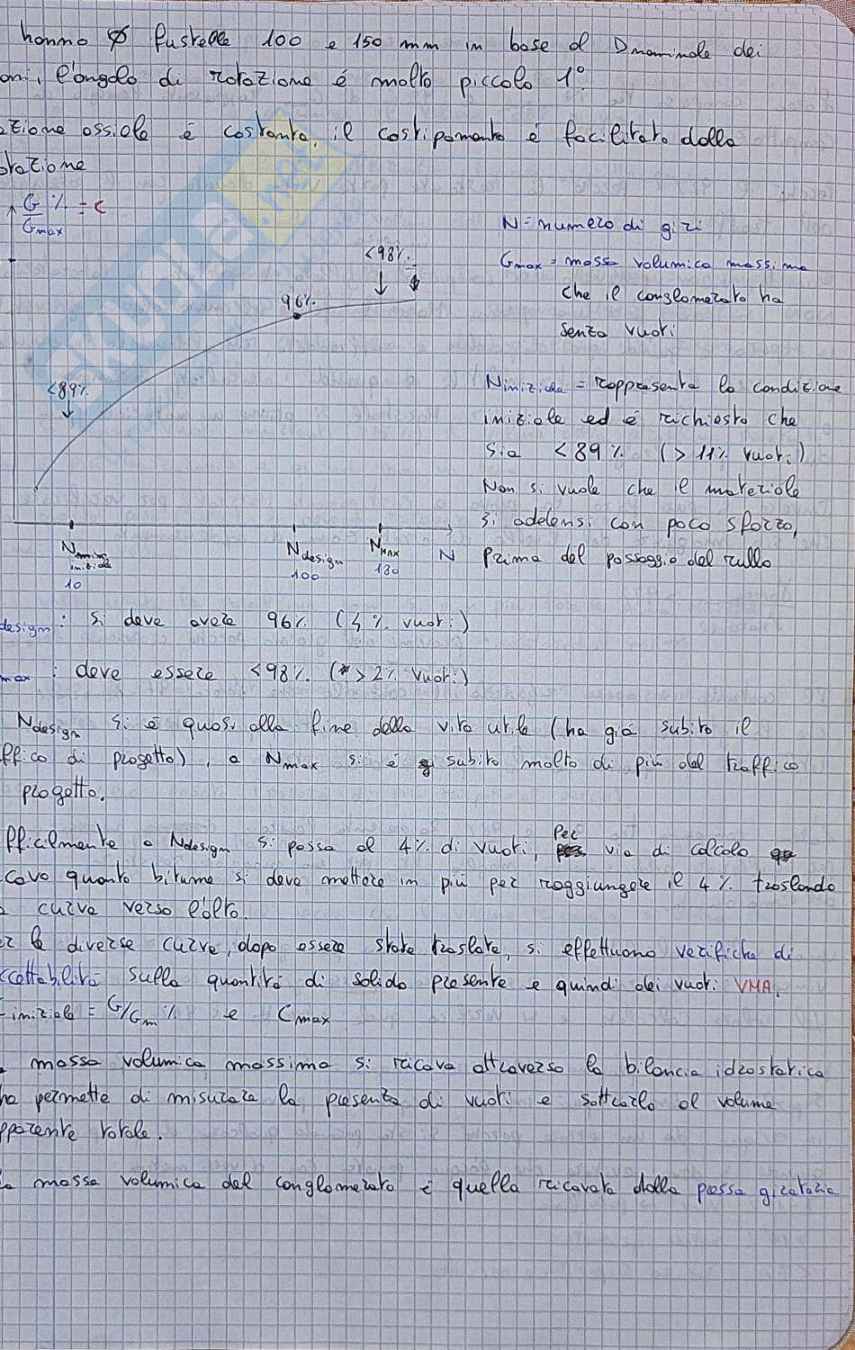 hanno ⌀ fustelle 100 e 150 mm in base al Dnominale dei
oni, l'angolo di rotazione é molto piccolo 1°.
azione assiale é costante, il costipamento é facilitato dalla
otazione
G/Gmax % = C
N = numero di giri
Gmax = massa volumica massima
che il conglomerato ha
senza vuoti
<98%
96%
<89%
Niniziale = rappresenta la condizione
iniziale ed é richiesto che
sia <89% (>11% vuoti)
Non si vuole che il materiale
si addensi con poco sforzo,
prima del passaggio del rullo
Niniziale Ndesign Nmax N
10 100 130
design: si deve avere 96% (4% vuoti)
max: deve essere <98% (>2% vuoti)
Ndesign si é quasi alla fine della vita utile (ha giá subito il
ffico di progetto), a Nmax si é subito molto di piú del traffico
progetto.
fficilmente a Ndesign si passa al 4% di vuoti, Per via di calcolo
cavo quanto bitume si deve mettere in piú per raggiungere il 4% traslando
curva verso l'alto.
er le diverse curve, dopo essere state traslate, si effettuano verifiche di
ccettabilitá sulla quantitá di solido presente e quindi dei vuoti VMA.
iniziale = G/Gm % e Cmax
massa volumica massima si ricava attraverso la bilancia idrostatica
he permette di misurare la presenza di vuoti e sottrarlo al volume
pparente totale.
a massa volumica del conglomerato é quella ricavata dalla pressa giratoria
skuola.net